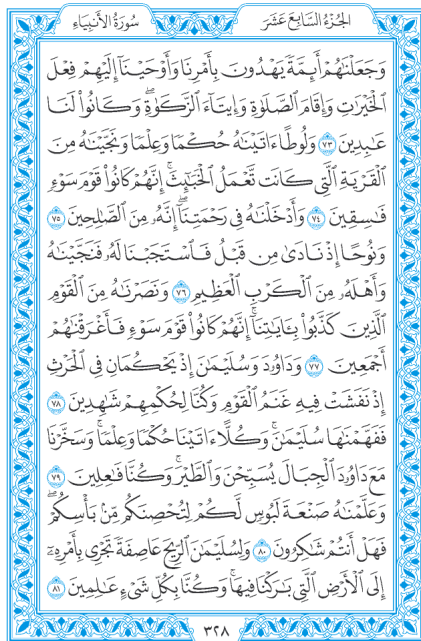 الجزء السابع عشر
سورة الأنبياء
وَجَعَلْنَٰهُمْ أَئِمَّةً يَهْدُونَ بِأَمْرِنَا وَأَوْحَيْنَآ إِلَيْهِمْ فِعْلَ
ٱلْخَيْرَٰتِ وَإِقَامَ ٱلصَّلَوٰةِ وَإِيتَآءَ ٱلزَّكَوٰةِۖ وَكَانُوا۟ لَنَا
عَٰبِدِينَ ٧٣ وَلُوطًا ءَاتَيْنَٰهُ حُكْمًا وَعِلْمًا وَنَجَّيْنَٰهُ مِنَ
ٱلْقَرْيَةِ ٱلَّتِى كَانَت تَّعْمَلُ ٱلْخَبَٰٓئِثَۚ إِنَّهُمْ كَانُوا۟ قَوْمَ سَوْءٍ
فَٰسِقِينَ ٧٤ وَأَدْخَلْنَٰهُ فِى رَحْمَتِنَآۖ إِنَّهُۥ مِنَ ٱلصَّٰلِحِينَ ٧٥
وَنُوحًا إِذْ نَادَىٰ مِن قَبْلُ فَٱسْتَجَبْنَا لَهُۥ فَنَجَّيْنَٰهُ
وَأَهْلَهُۥ مِنَ ٱلْكَرْبِ ٱلْعَظِيمِ ٧٦ وَنَصَرْنَٰهُ مِنَ ٱلْقَوْمِ
ٱلَّذِينَ كَذَّبُوا۟ بِـَٔايَٰتِنَآۚ إِنَّهُمْ كَانُوا۟ قَوْمَ سَوْءٍ فَأَغْرَقْنَٰهُمْ
أَجْمَعِينَ ٧٧ وَدَاوُۥدَ وَسُلَيْمَٰنَ إِذْ يَحْكُمَانِ فِى ٱلْحَرْثِ
إِذْ نَفَشَتْ فِيهِ غَنَمُ ٱلْقَوْمِ وَكُنَّا لِحُكْمِهِمْ شَٰهِدِينَ ٧٨
فَفَهَّمْنَٰهَا سُلَيْمَٰنَۚ وَكُلًّا ءَاتَيْنَا حُكْمًا وَعِلْمًاۚ وَسَخَّرْنَا
مَعَ دَاوُۥدَ ٱلْجِبَالَ يُسَبِّحْنَ وَٱلطَّيْرَۚ وَكُنَّا فَٰعِلِينَ ٧٩
وَعَلَّمْنَٰهُ صَنْعَةَ لَبُوسٍ لَّكُمْ لِتُحْصِنَكُم مِّنۢ بَأْسِكُمْۖ
فَهَلْ أَنتُمْ شَٰكِرُونَ ٨٠ وَلِسُلَيْمَٰنَ ٱلرِّيحَ عَاصِفَةً تَجْرِى بِأَمْرِهِۦٓ
إِلَى ٱلْأَرْضِ ٱلَّتِى بَٰرَكْنَا فِيهَاۚ وَكُنَّا بِكُلِّ شَىْءٍ عَٰلِمِينَ ٨١
٣٢٨